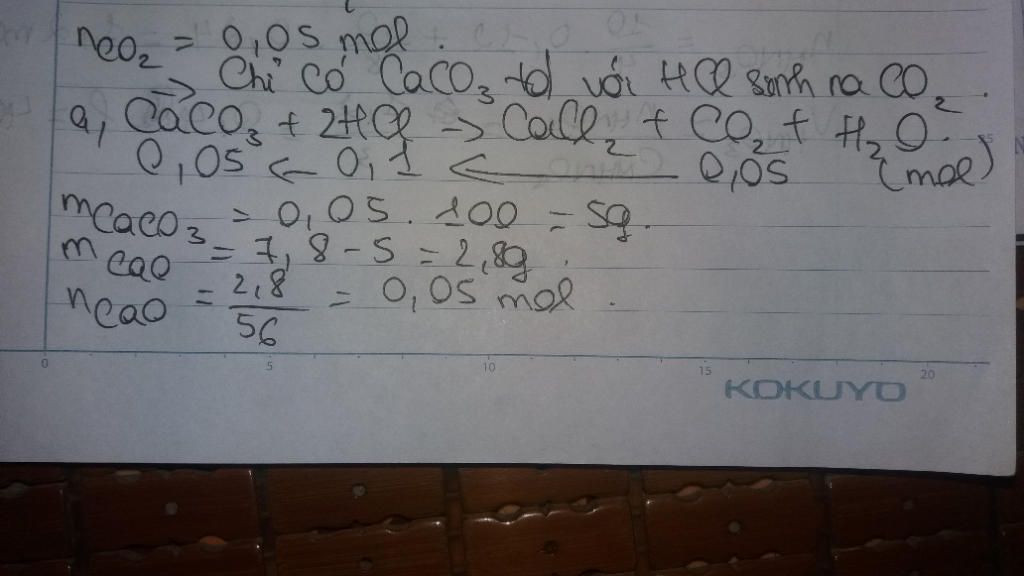 nCO₂ = 0,05 mol.
→ Chỉ có CaCO₃ td với HCl sinh na CO₂.
a, CaCO₃ + 2HCl → CaCl₂ + CO₂ + H₂O.
0,05 ← 0,1 ← 0,05 (mol)
mCaCO₃ = 0,05 . 100 = 5g.
mCaO = 7,8 - 5 = 2,8g.
nCaO = 2,8/56 = 0,05 mol.
0 5 10 15 20
KOKUYO